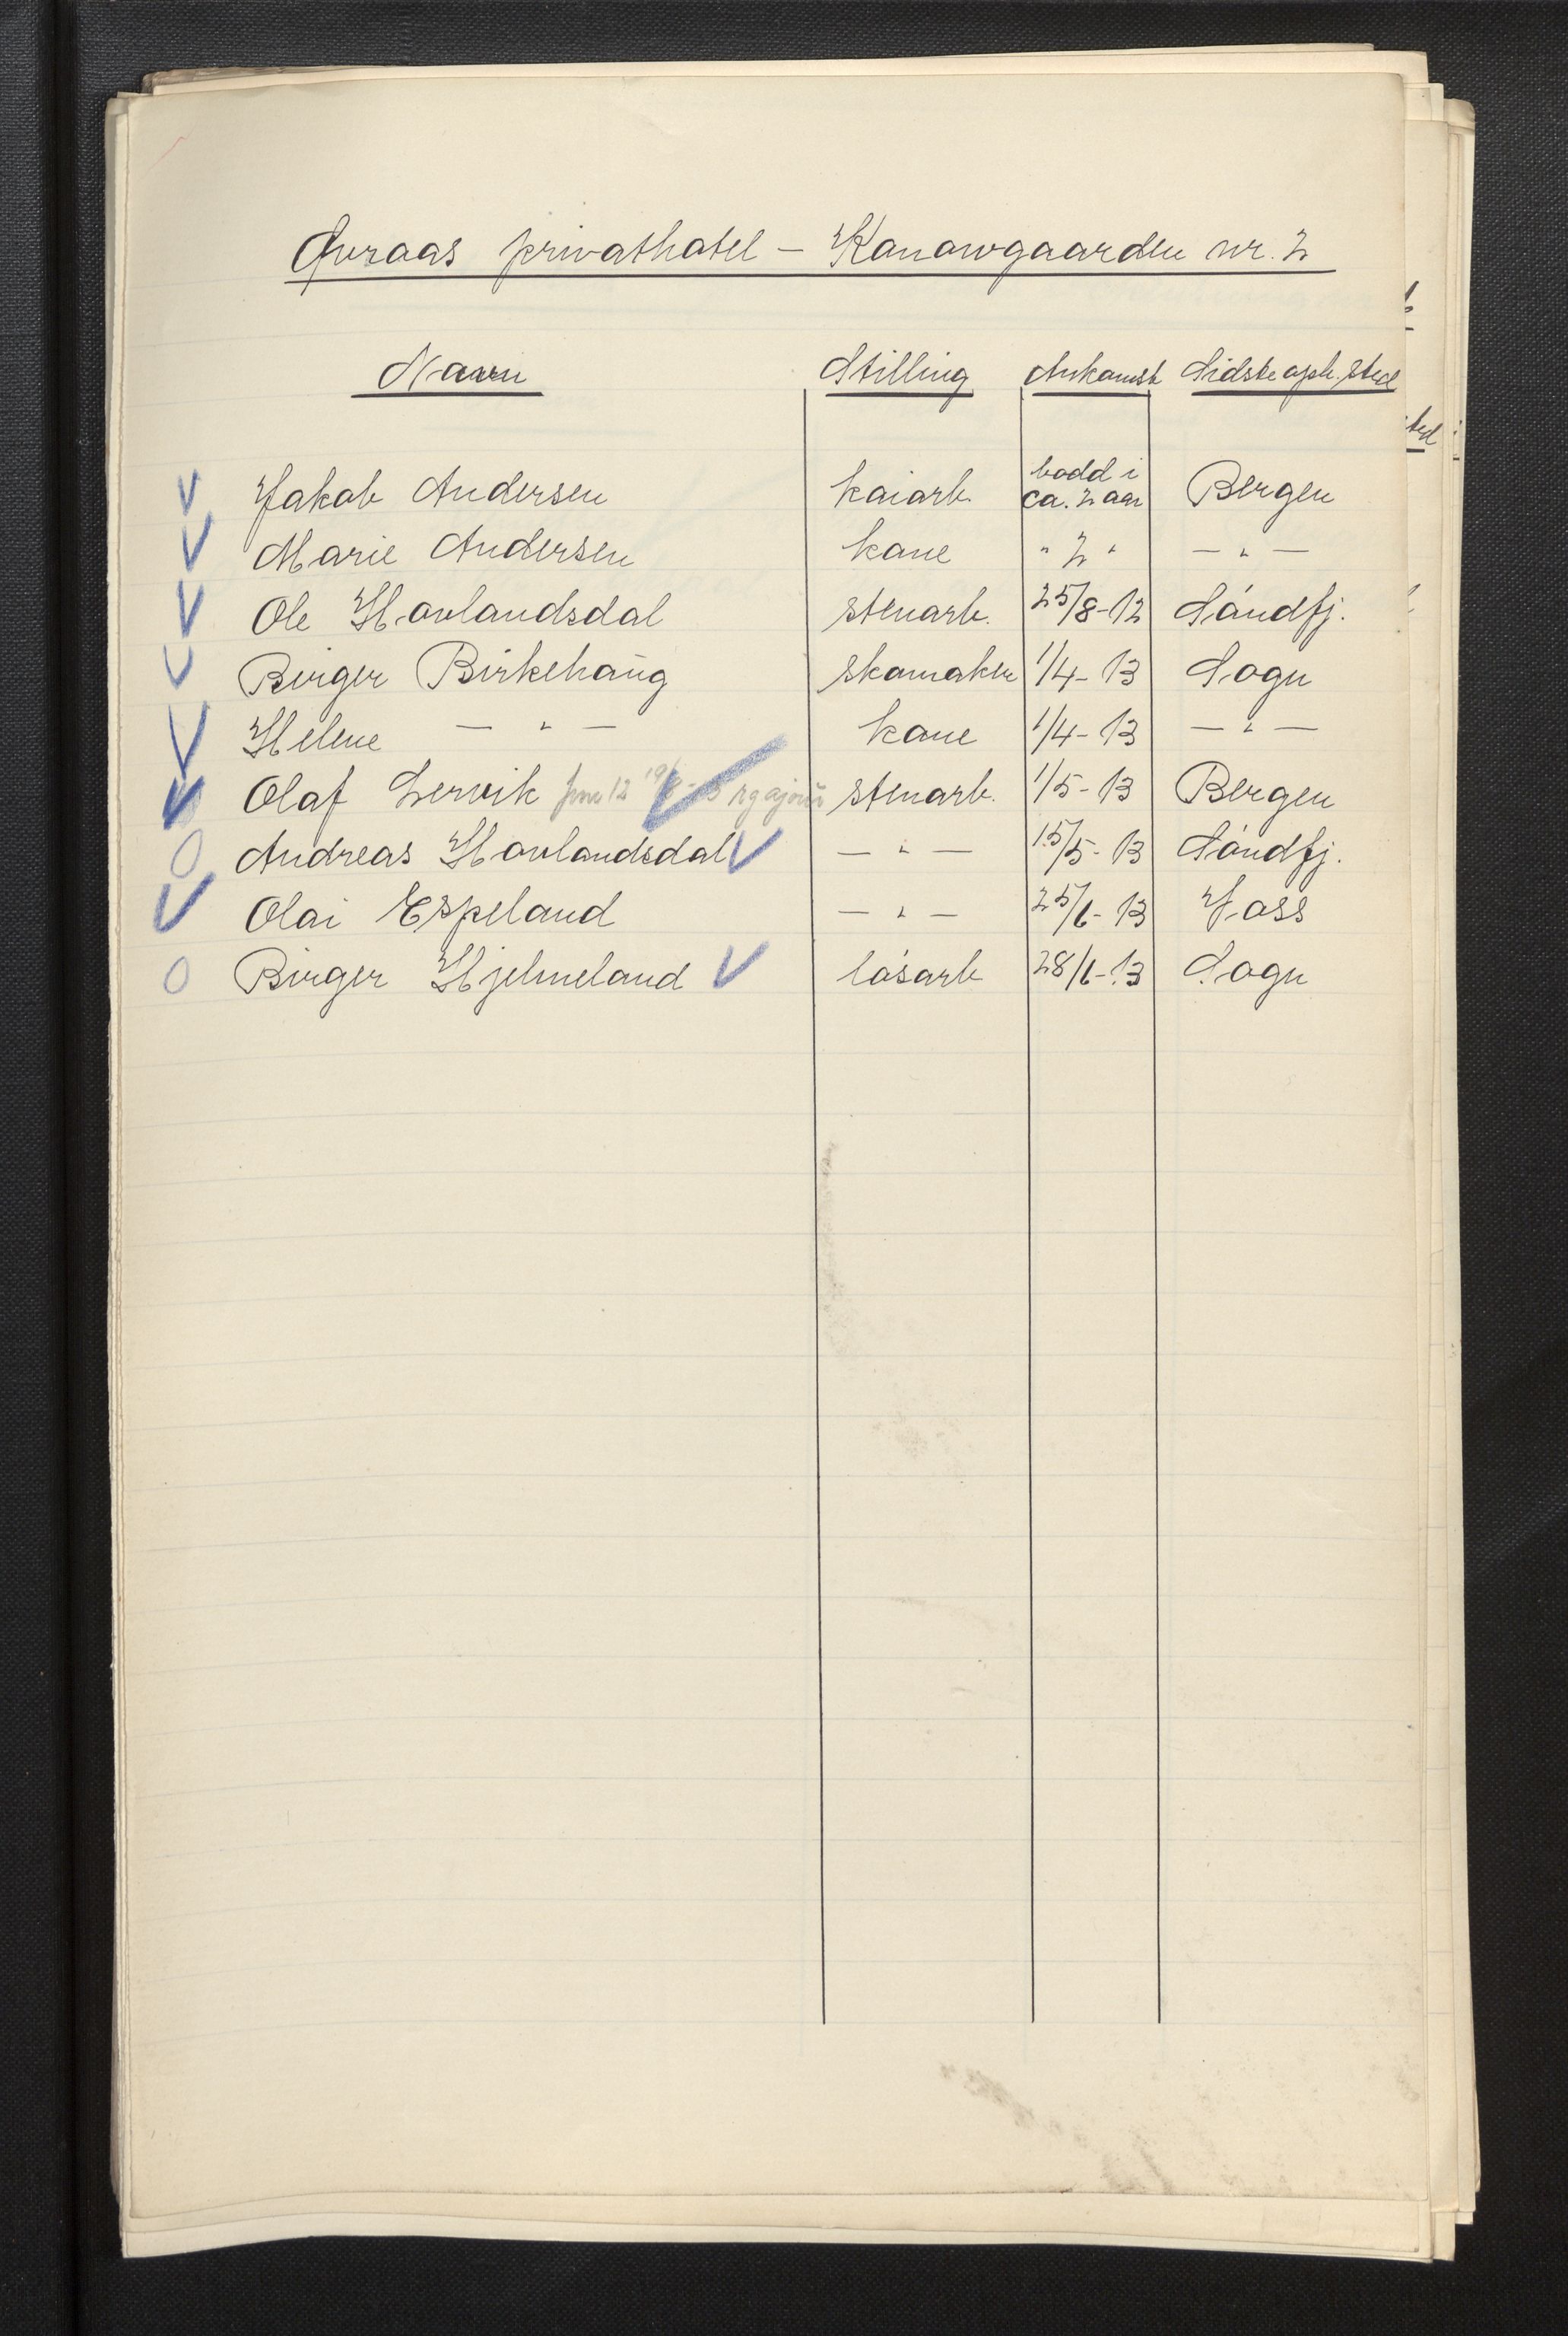 Aasaas privathotel – Konowgaarden nr. 2
Navn Stilling Ankomst Sidste oph. sted
Jakob Andersen kaiarb. bodd i ca. 2 aar Bergen
Marie Andersen kone " 2 " — " —
Ole Hovlandsdal stenarb. 25/8-12 Söndfj.
Birger Birkehaug skomaker 1/4-13 Sogn
Helene — " — kone 1/4-13 — " —
Olaf Lervik stenarb. 1/5-13 Bergen
Andreas Hovlandsdal — " — 15/5-13 Söndfj.
Olai Espeland — " — 25/6-13 Voss
Birger Hjelmeland lösarb 28/6-13 Sogn